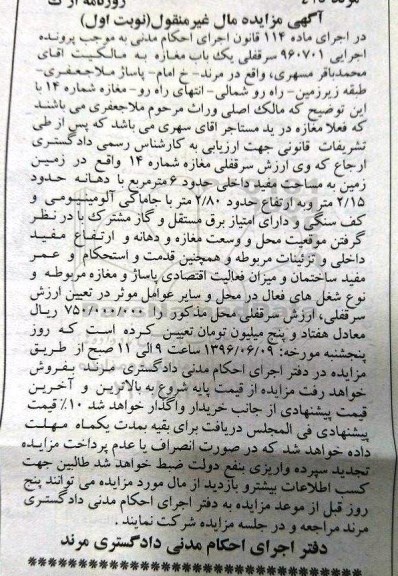 آگهی مزایده مال غیرمنقول(نوبت اول)
در اجرای ماده ۱۱۴ قانون اجرای احکام مدنی به موجب پرونده
اجرایی ۹۶۰۷۰۱ سرقفلی یک باب مغازه به مالکیت آقای
محمدباقر مسهری، واقع در مرند- خ امام- پاساژ ملاجعفری-
طبقه زیرزمین- راه رو شمالی- انتهای راه رو- مغازه شماره ۱۴ با
این توضیح که مالک اصلی وراث مرحوم ملاجعفری می باشند
که فعلا مغازه در ید مستاجر آقای سهری می باشد که پس از طی
تشریفات قانونی جهت ارزیابی به کارشناس رسمی دادگستری
ارجاع که وی ارزش سرقفلی مغازه شماره ۱۴ واقع در زمین
زمین به مساحت مفید داخلی حدود ۶ مترمربع با دهانه حدود
۲/۱۵ متر و به ارتفاع حدود ۲/۸۰ متر با جاماکی آلومینیومی و
کف سنگی و دارای امتیاز برق مستقل و گاز مشترک با در نظر
گرفتن موقعیت محل و وسعت مغازه و دهانه و ارتفاع مفید
داخلی و تزئینات مربوطه و همچنین قدمت و استحکام و عمر
مفید ساختمان و میزان فعالیت اقتصادی پاساژ و مغازه مربوطه و
نوع شغل های فعال در محل و سایر عوامل موثر در تعیین ارزش
سرقفلی، ارزش سرقفلی محل مذکور را ۷۵۰/۰۰۰/۰۰۰ ریال
معادل هفتاد و پنج میلیون تومان تعیین کرده است که روز
پنجشنبه مورخه: ۱۳۹۶/۰۶/۰۹ ساعت ۹ الی ۱۱ صبح از طریق
مزایده در دفتر اجرای احکام مدنی دادگستری مرند بفروش
خواهد رفت مزایده از قیمت پایه شروع به بالاترین و آخرین
قیمت پیشنهادی از جانب خریدار واگذار خواهد شد ۱۰٪ قیمت
پیشنهادی فی المجلس دریافت برای بقیه بمدت یکماه مهلت
داده خواهد شد که در صورت انصراف یا عدم پرداخت مزایده
تجدید سپرده واریزی بنفع دولت ضبط خواهد شد طالبین جهت
کسب اطلاعات بیشتر و بازدید از مال مورد مزایده می توانند پنج
روز قبل از موعد مزایده به دفتر اجرای احکام مدنی دادگستری
مرند مراجعه و در جلسه مزایده شرکت نمایند.
دفتر اجرای احکام مدنی دادگستری مرند